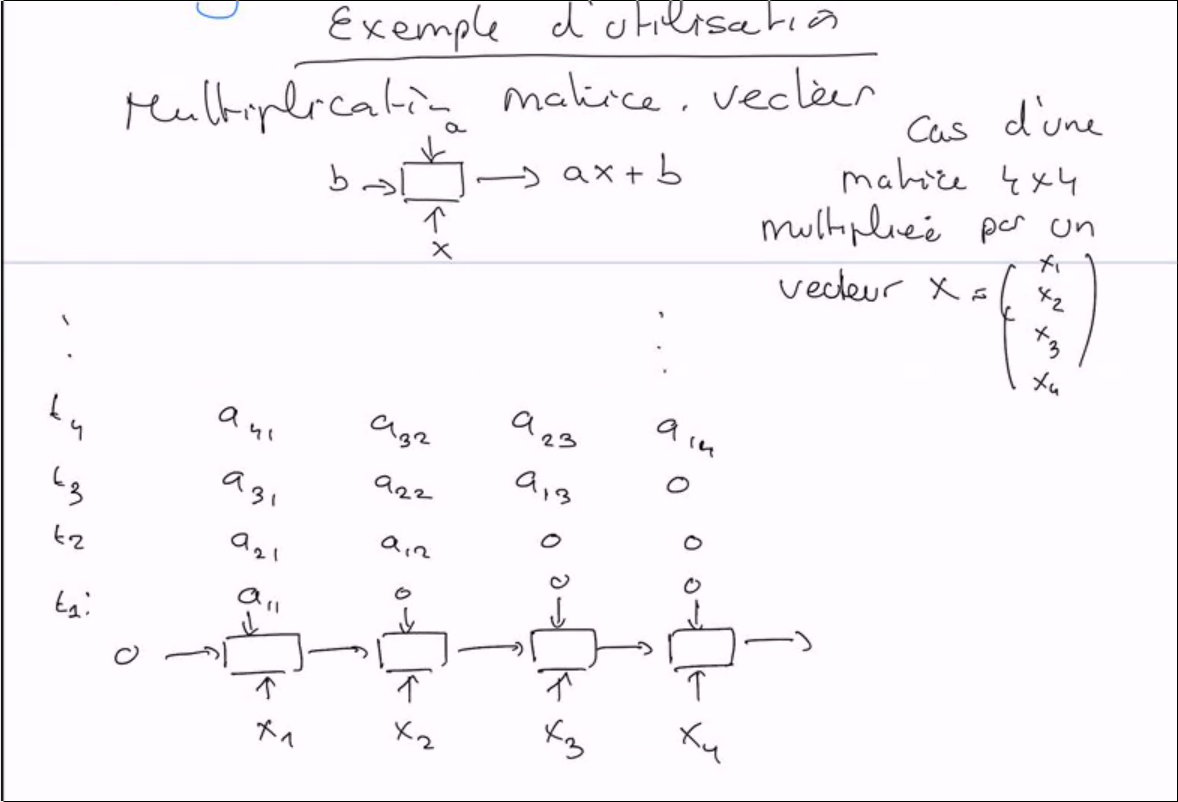 Exemple d'utilisation
Multiplication matrice . vecteur
a
b → → ax + b
x
Cas d'une
matrice 4x4
multipliée par un
vecteur X = ( x1
x2
x3
x4 )
t4 a41 a32 a23 a14
t3 a31 a22 a13 0
t2 a21 a12 0 0
t1: a11 0 0 0
0 → → → → →
x1 x2 x3 x4